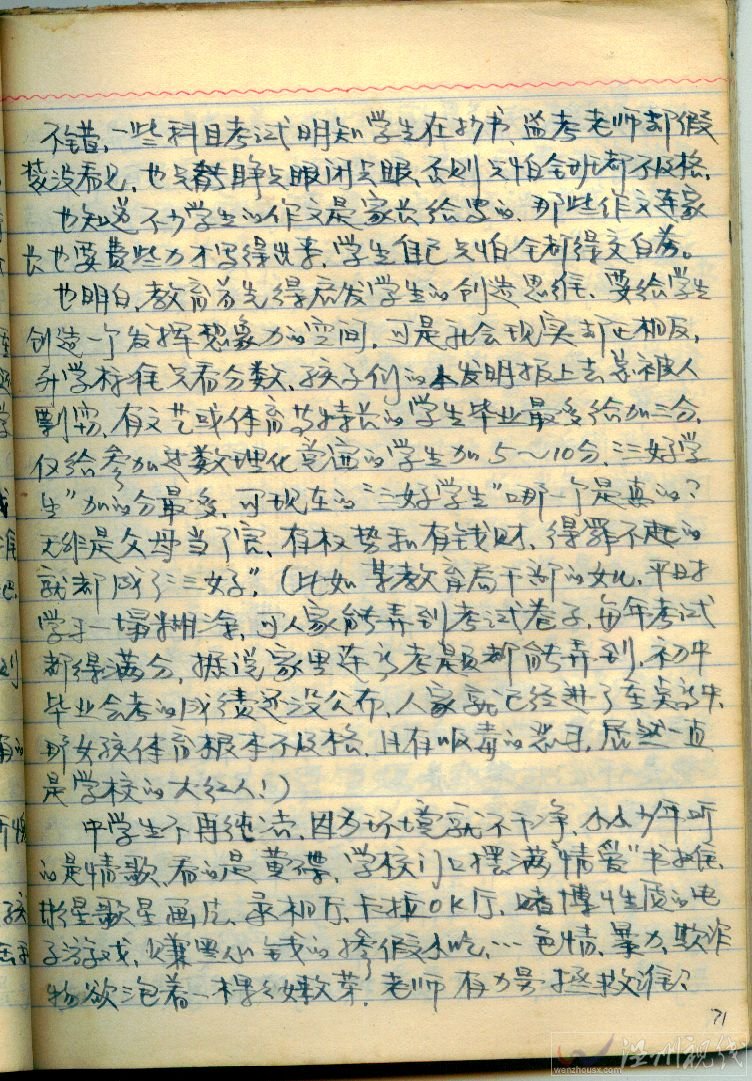 不错,一些科目考试明知学生在抄书,监考老师都假
装没看见,也只睁只眼闭只眼,否则只怕全班都不及格。
也知道不少学生的作文是家长给写的,那些作文连家
长也要费些力才写得出来,学生自己只怕全都得交白卷。
也明白,教育首先得启发学生的创造思维,要给学生
创造一个发挥想象力的空间,可是社会现实却正相反,
升学标准只看分数,孩子们的小发明报上去,常被人
剽窃,有文艺或体育等特长的学生毕业最多给加三分,
仅给参加过数理化竞赛的学生加5~10分,“三好学
生”加的分最多,可现在的“三好学生”哪一个是真的?
无非是父母当了官,有权势和有钱财,得罪不起的
就都成了“三好”。(比如某教育局干部的女儿,平时
学于一塌糊涂,可人家能弄到考试卷子,每年考试
都得满分,据说家里连高考题都能弄到,初中
毕业会考的成绩还没公布,人家就已经进了重点高中,
那女孩体育根本不及格,且有吸毒的恶习,居然一直
是学校的大红人!)
中学生不再纯洁,因为环境就不干净,小小少年听
的是情歌,看的是黄碟,学校门口摆满“情爱”书摊,
影星歌星画片,录相厅,卡拉OK厅,赌博性质的电
子游戏,赚黑心钱的掺假小吃,…色情,暴力,欺诈
物欲泡着一棵棵嫩菜,老师有力量拯救谁?
71
温州视线
wenzhousx.com